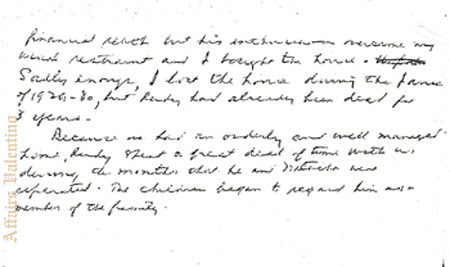 financial reach but his enthusiasm overcame my
usual restraint and I bought the house.
Sadly enough, I lost the house during the Panic
of 1929-30, but Rudy had already been dead for
3 years.
Because we had an orderly and well managed
home, Rudy spent a great deal of time with us
during the months that he and Natacha were
separated. The children began to regard him as a
member of the family.
Affairs Valentino